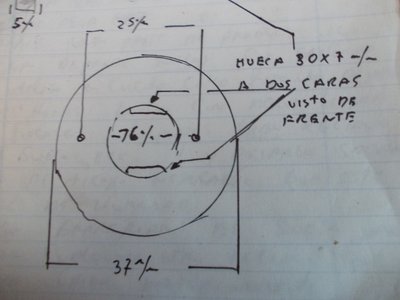 5 m/m
25 m/m
MUECA 30X7 m/m
A DOS CARAS
VISTO DE
FRENTE
-76 m/m-
37 m/m